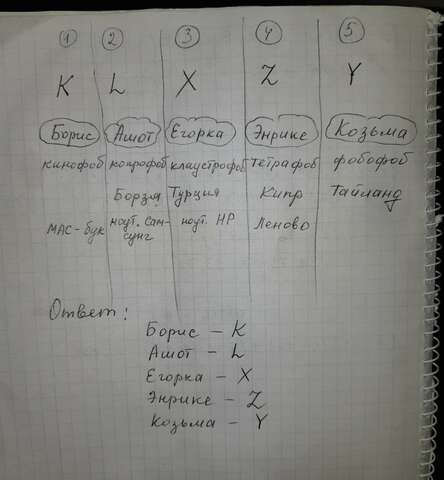 1 2 3 4 5
K L X Z Y
Борис Ашот Егорка Энрике Козьма
кинофоб копрофоб клаустрофоб тетрафоб фобофоб
Борзя Турция Кипр Тайланд
МАС-бук ноут. Сам- ноут. HP Леново
сунг
Ответ:
Борис – K
Ашот – L
Егорка – X
Энрике – Z
Козьма – Y